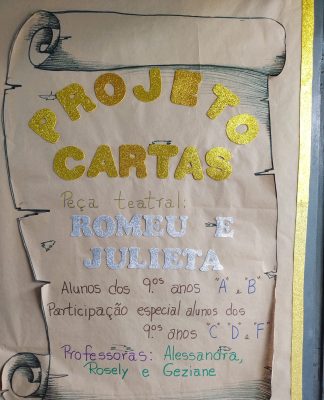 PROJETO
CARTAS
Peça teatral:
ROMEU E
JULIETA
Alunos dos 9.ºs anos "A" e "B"
Participação especial alunos dos
9.ºs anos "C" "D" e "F"
Professoras: Alessandra,
Rosely e Geziane